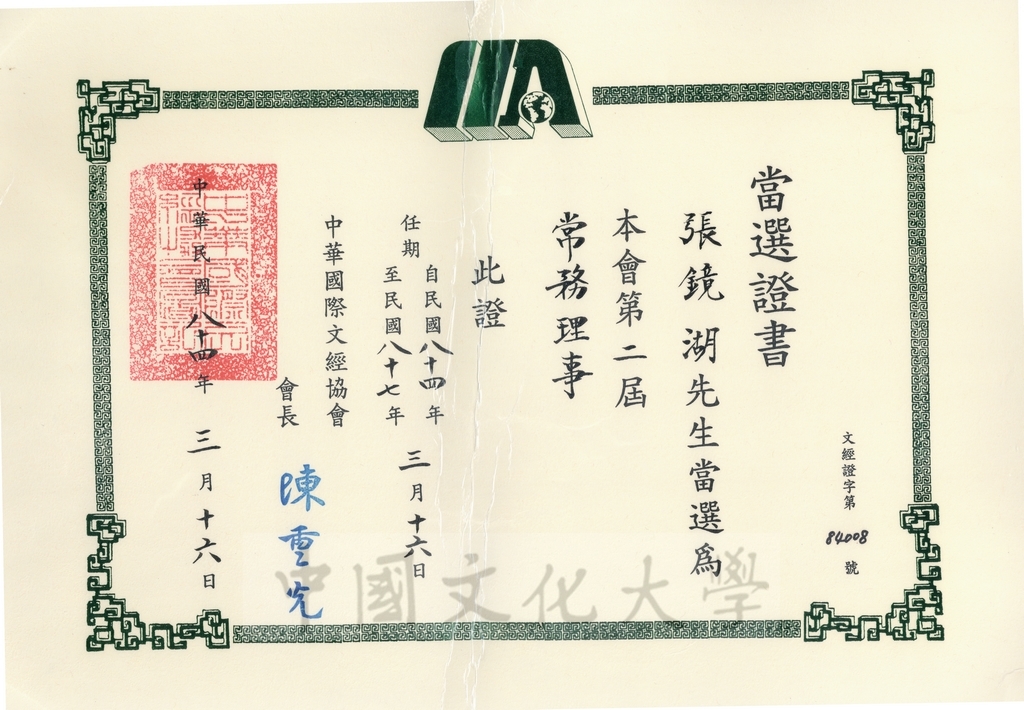 當選證書
文經證字第 84008 號
張鏡湖先生當選為
本會第二屆
常務理事
此證
任期 自民國八十四年 三月十六日
至民國八十七年
中華國際文經協會
會長 陳雲先
中華民國八十四年三月十六日
中國文化大學